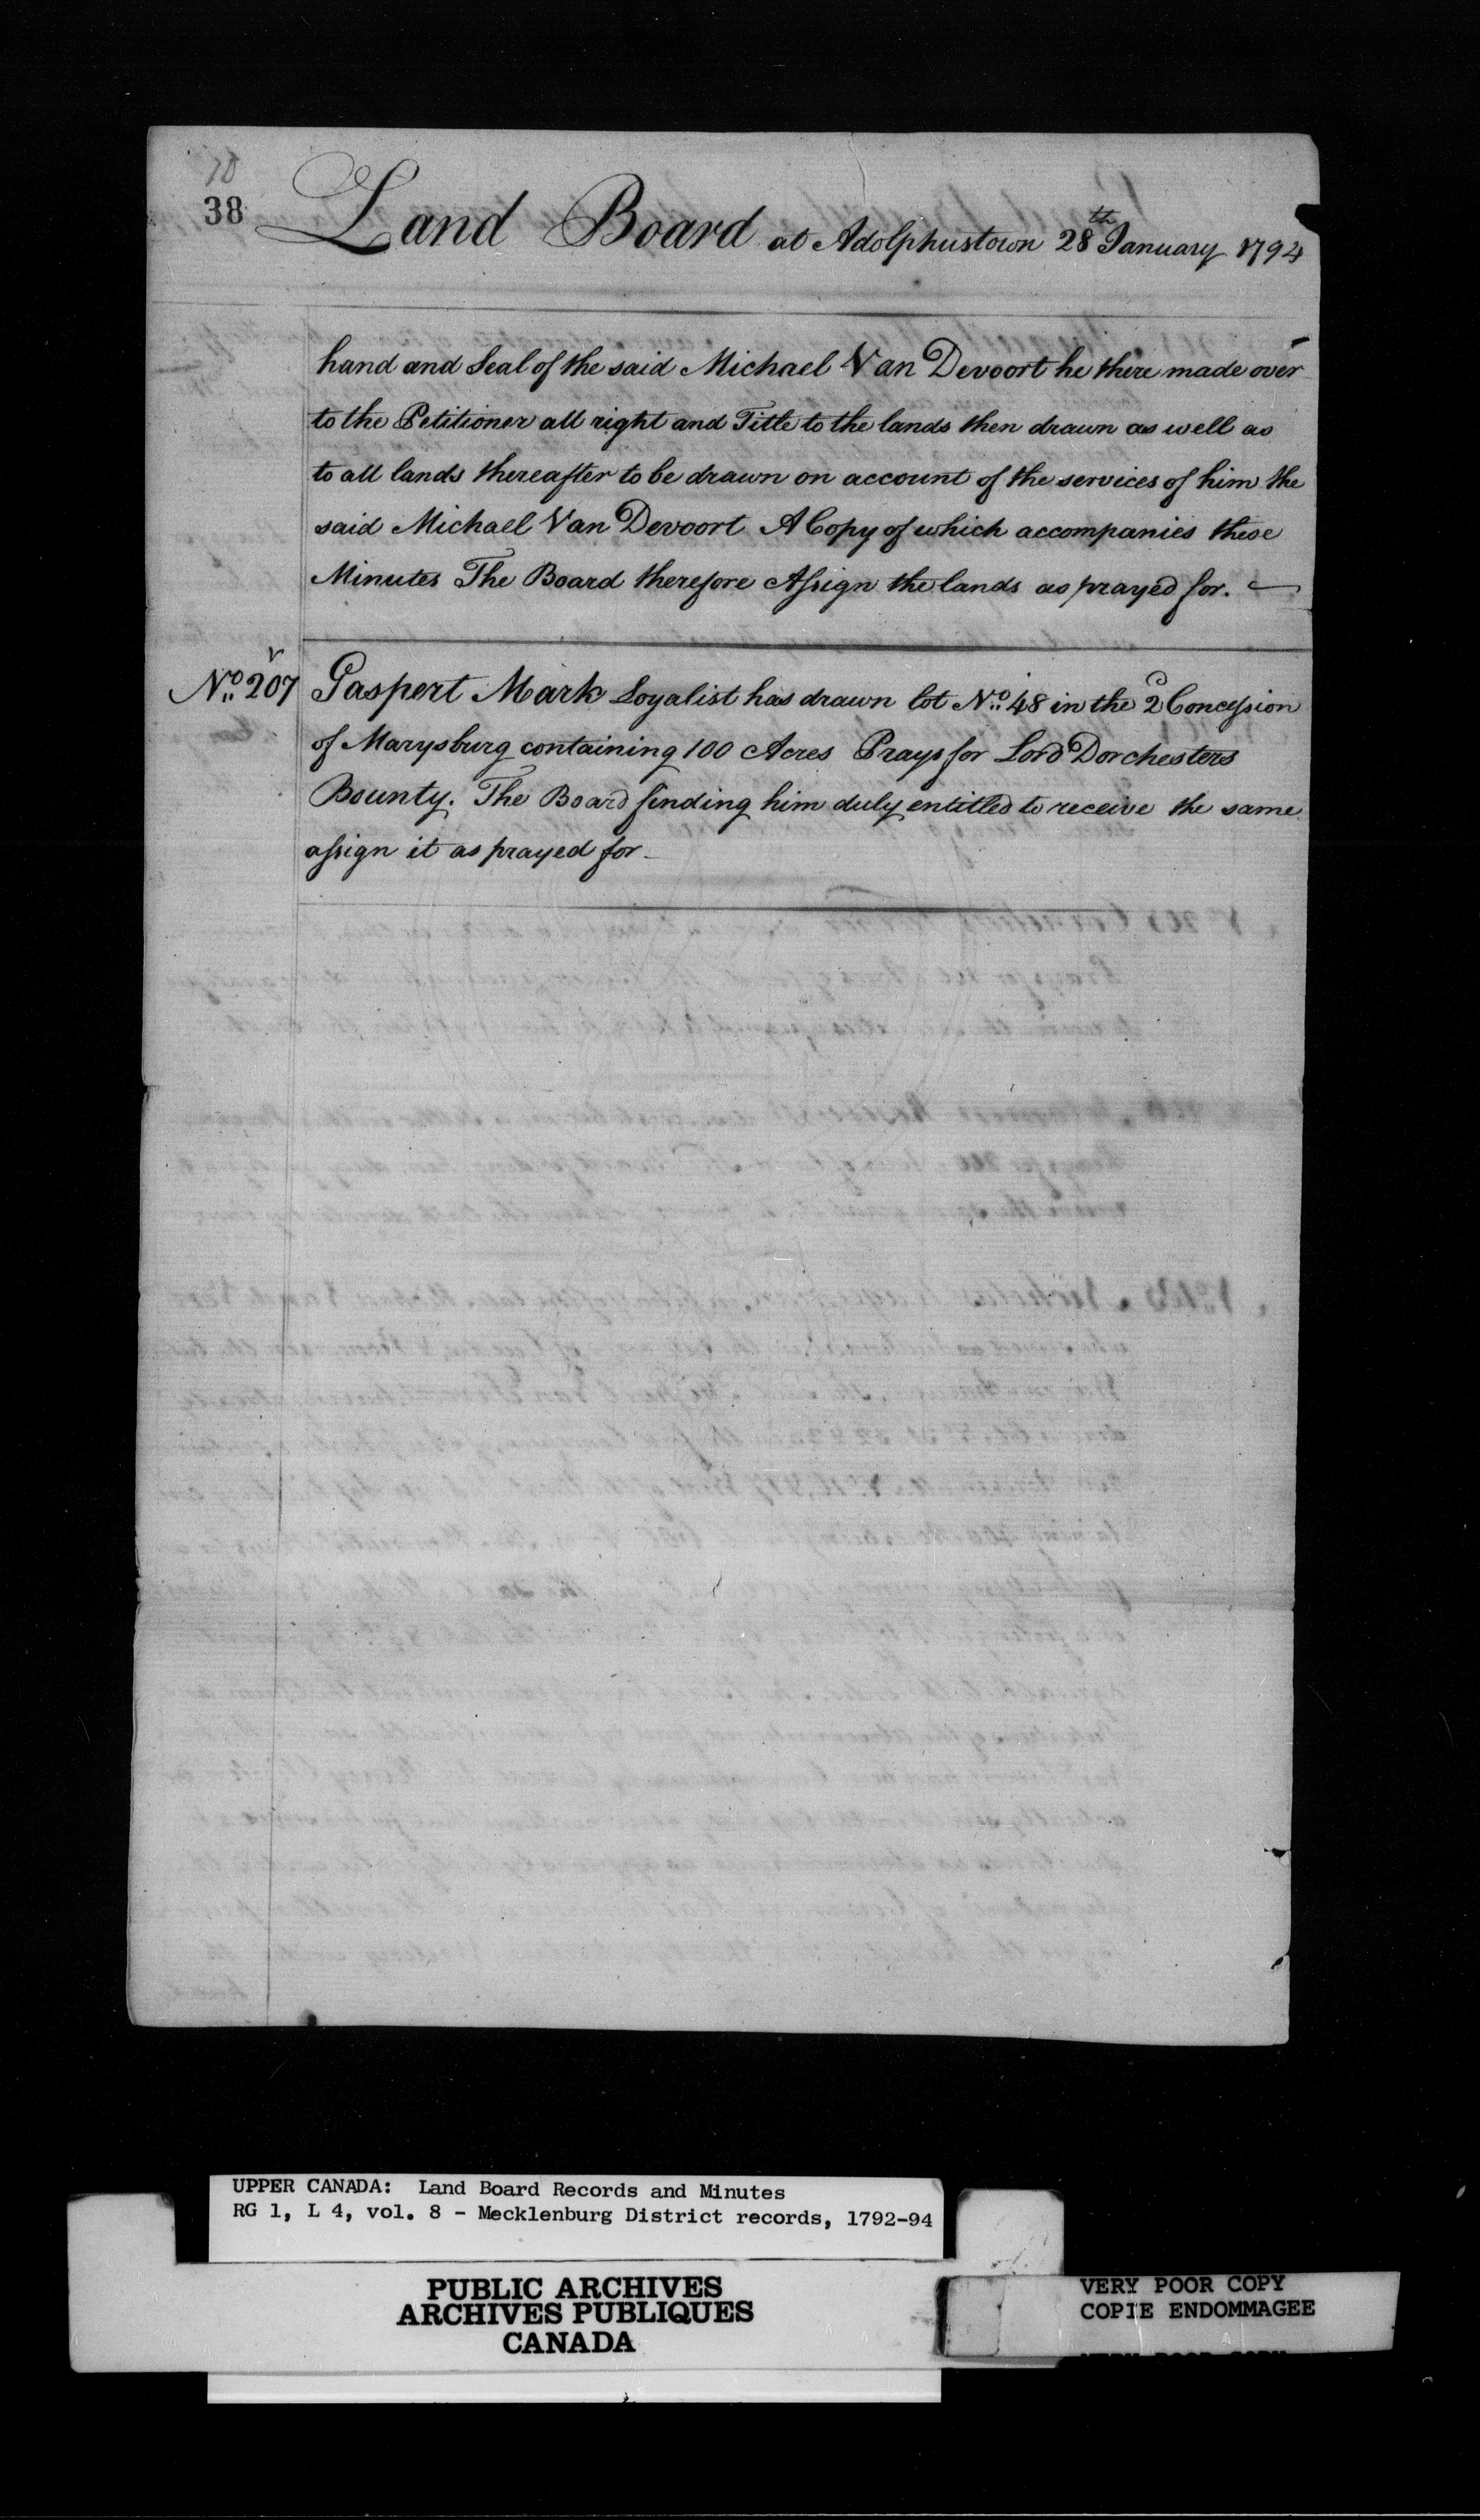 38
Land Board at Adolphustown 28th January 1794
hand and Seal of the said Michael Van Devoort he there made over
to the Petitioner all right and Title to the lands then drawn as well as
to all lands thereafter to be drawn on account of the services of him the
said Michael Van Devoort A Copy of which accompanies these
Minutes The Board therefore Assign the lands as prayed for.
No. 207 Gaspert Mark Loyalist has drawn lot No. 48 in the 2d Concession
of Marysburg containing 100 Acres Prays for Lord Dorchesters
Bounty. The Board finding him duly entitled to receive the same
assign it as prayed for
UPPER CANADA: Land Board Records and Minutes
RG 1, L 4, vol. 8 - Mecklenburg District records, 1792-94
PUBLIC ARCHIVES
ARCHIVES PUBLIQUES
CANADA
VERY POOR COPY
COPIE ENDOMMAGEE